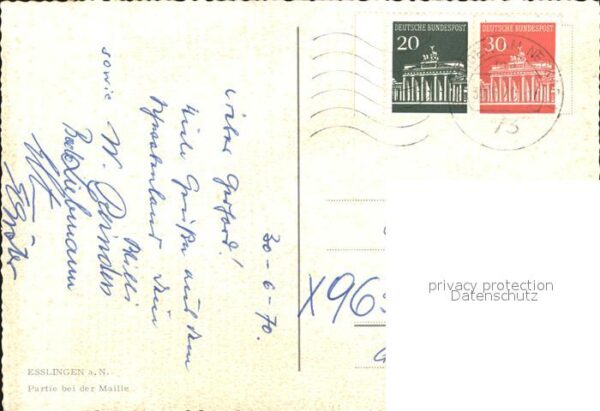 DEUTSCHE BUNDESPOST
20
DEUTSCHE BUNDESPOST
30
73
30-6-70.
Lieber Gerhard!
Viele Grüße aus dem
Schwabenland Dein
Willi
sowie W.
Liebmann
X96
privacy protection
Datenschutz
ESSLINGEN a. N.
Partie bei der Maille